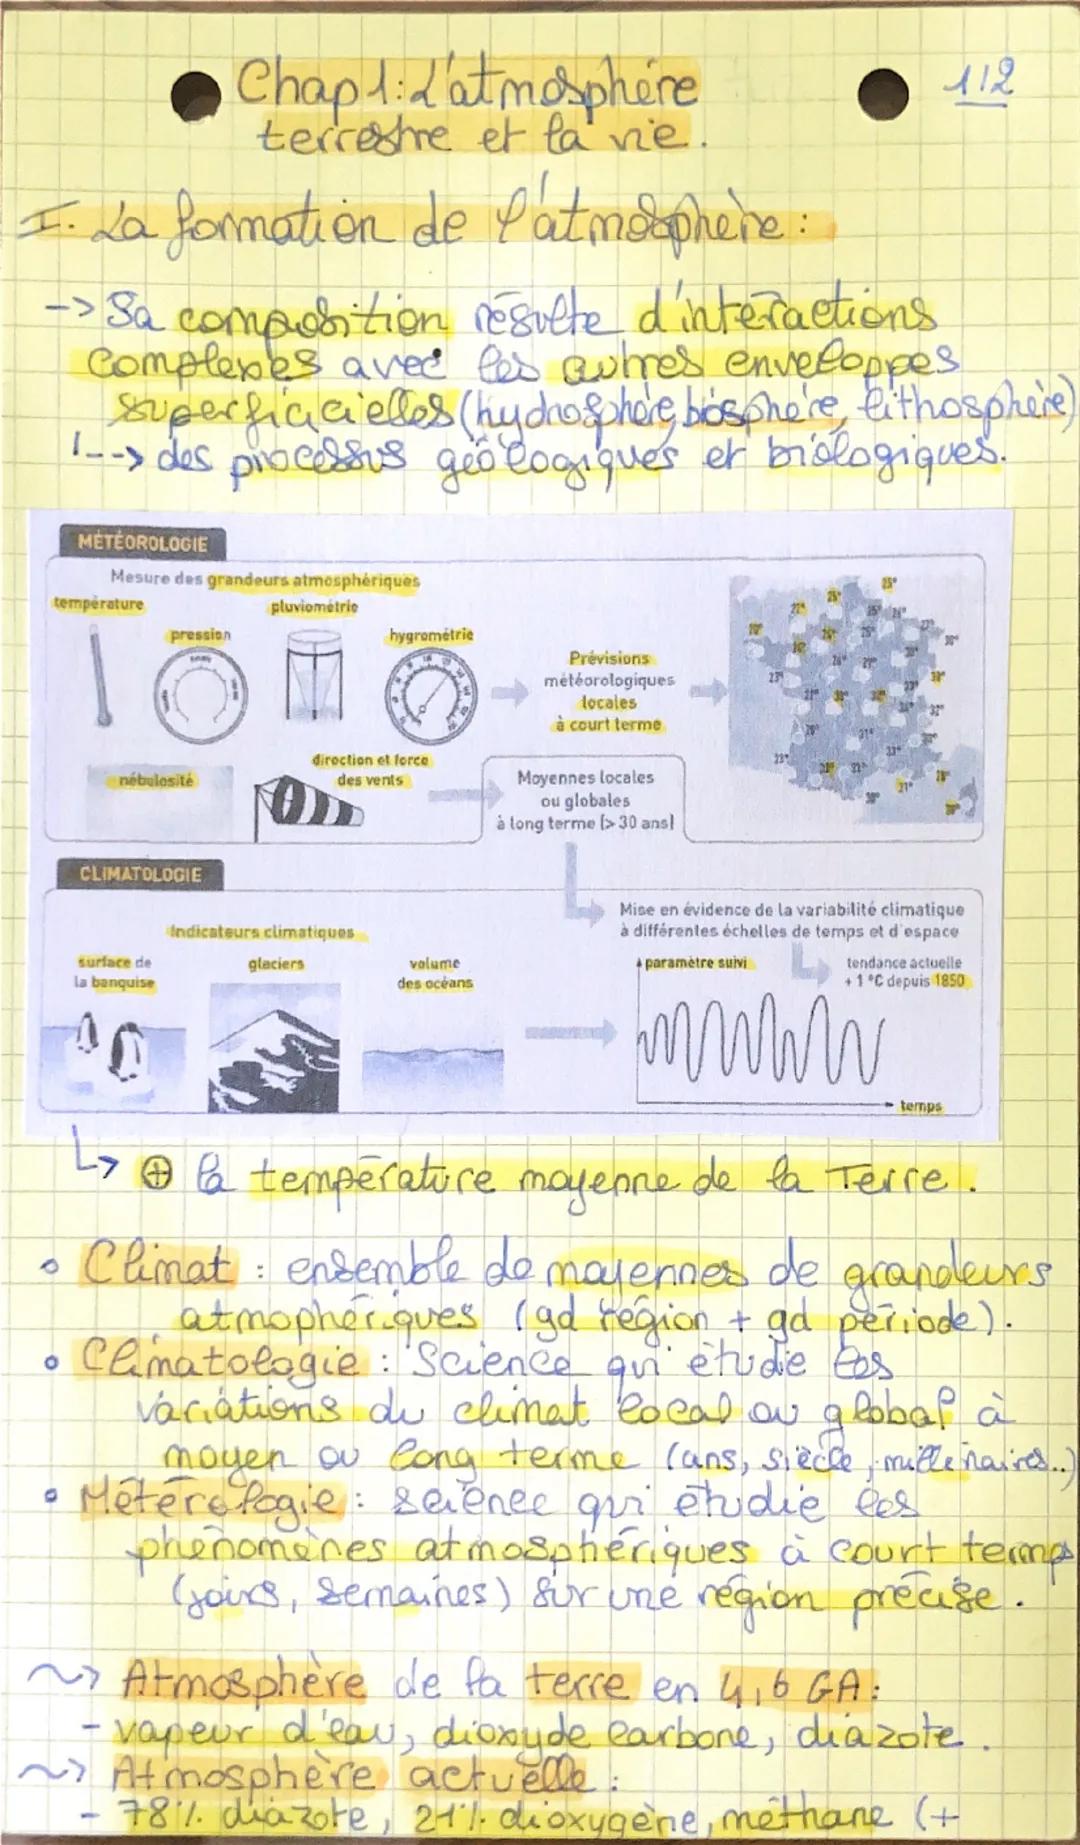 Chap 1: L'atmosphère
terrestre et la vie.
1/2
I. La formation de l'atmosphère :
-> Sa composition résulte d'interactions
complexes avec les autres enveloppes
superficicielles (hydrosphère, biosphère, lithosphère)
--> des processus géologiques et biologiques.
MÉTÉOROLOGIE
Mesure des grandeurs atmosphériques
température
pluviométrie
pression
hygrométrie
Prévisions
météorologiques
locales
à court terme
nébulosité
direction et force
des vents
Moyennes locales
ou globales
à long terme (> 30 ans)
CLIMATOLOGIE
Indicateurs climatiques
Mise en évidence de la variabilité climatique
à différentes échelles de temps et d'espace
surface de
la banquise
glaciers
volume
des océans
paramètre suivi
tendance actuelle
+ 1 °C depuis 1850
temps
↳ ⊕ la température moyenne de la Terre.
• Climat : ensemble de moyennes de grandeurs
atmophériques (gd région + gd période).
• Climatologie : Science qui étudie les
variations du climat local ou global à
moyen ou long terme (ans, siècle, millénaires..)
• Météréologie : science qui étudie les
phénomènes atmosphériques à court temps
(jours, semaines) sur une région précise.
~> Atmosphère de la terre en 4,6 GA :
- vapeur d'eau, dioxyde carbone, diazote.
~> Atmosphère actuelle :
- 78% diazote, 21% dioxygène, méthane (+